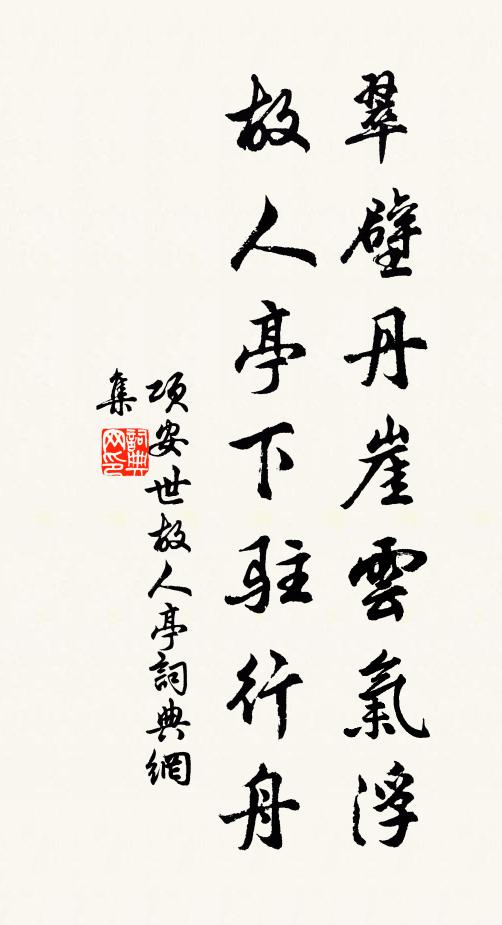 翠壁丹崖雲氣浮
故人亭下駐行舟
項安世故人亭詞典網
集
詞典網印